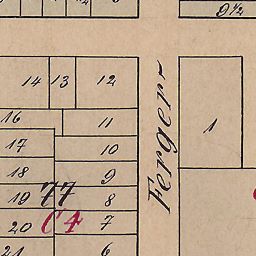 9 1/2
14 13 12
16 11
17 10
18 9
19 77 8
20 C4 7
21 6
1
Fergerr